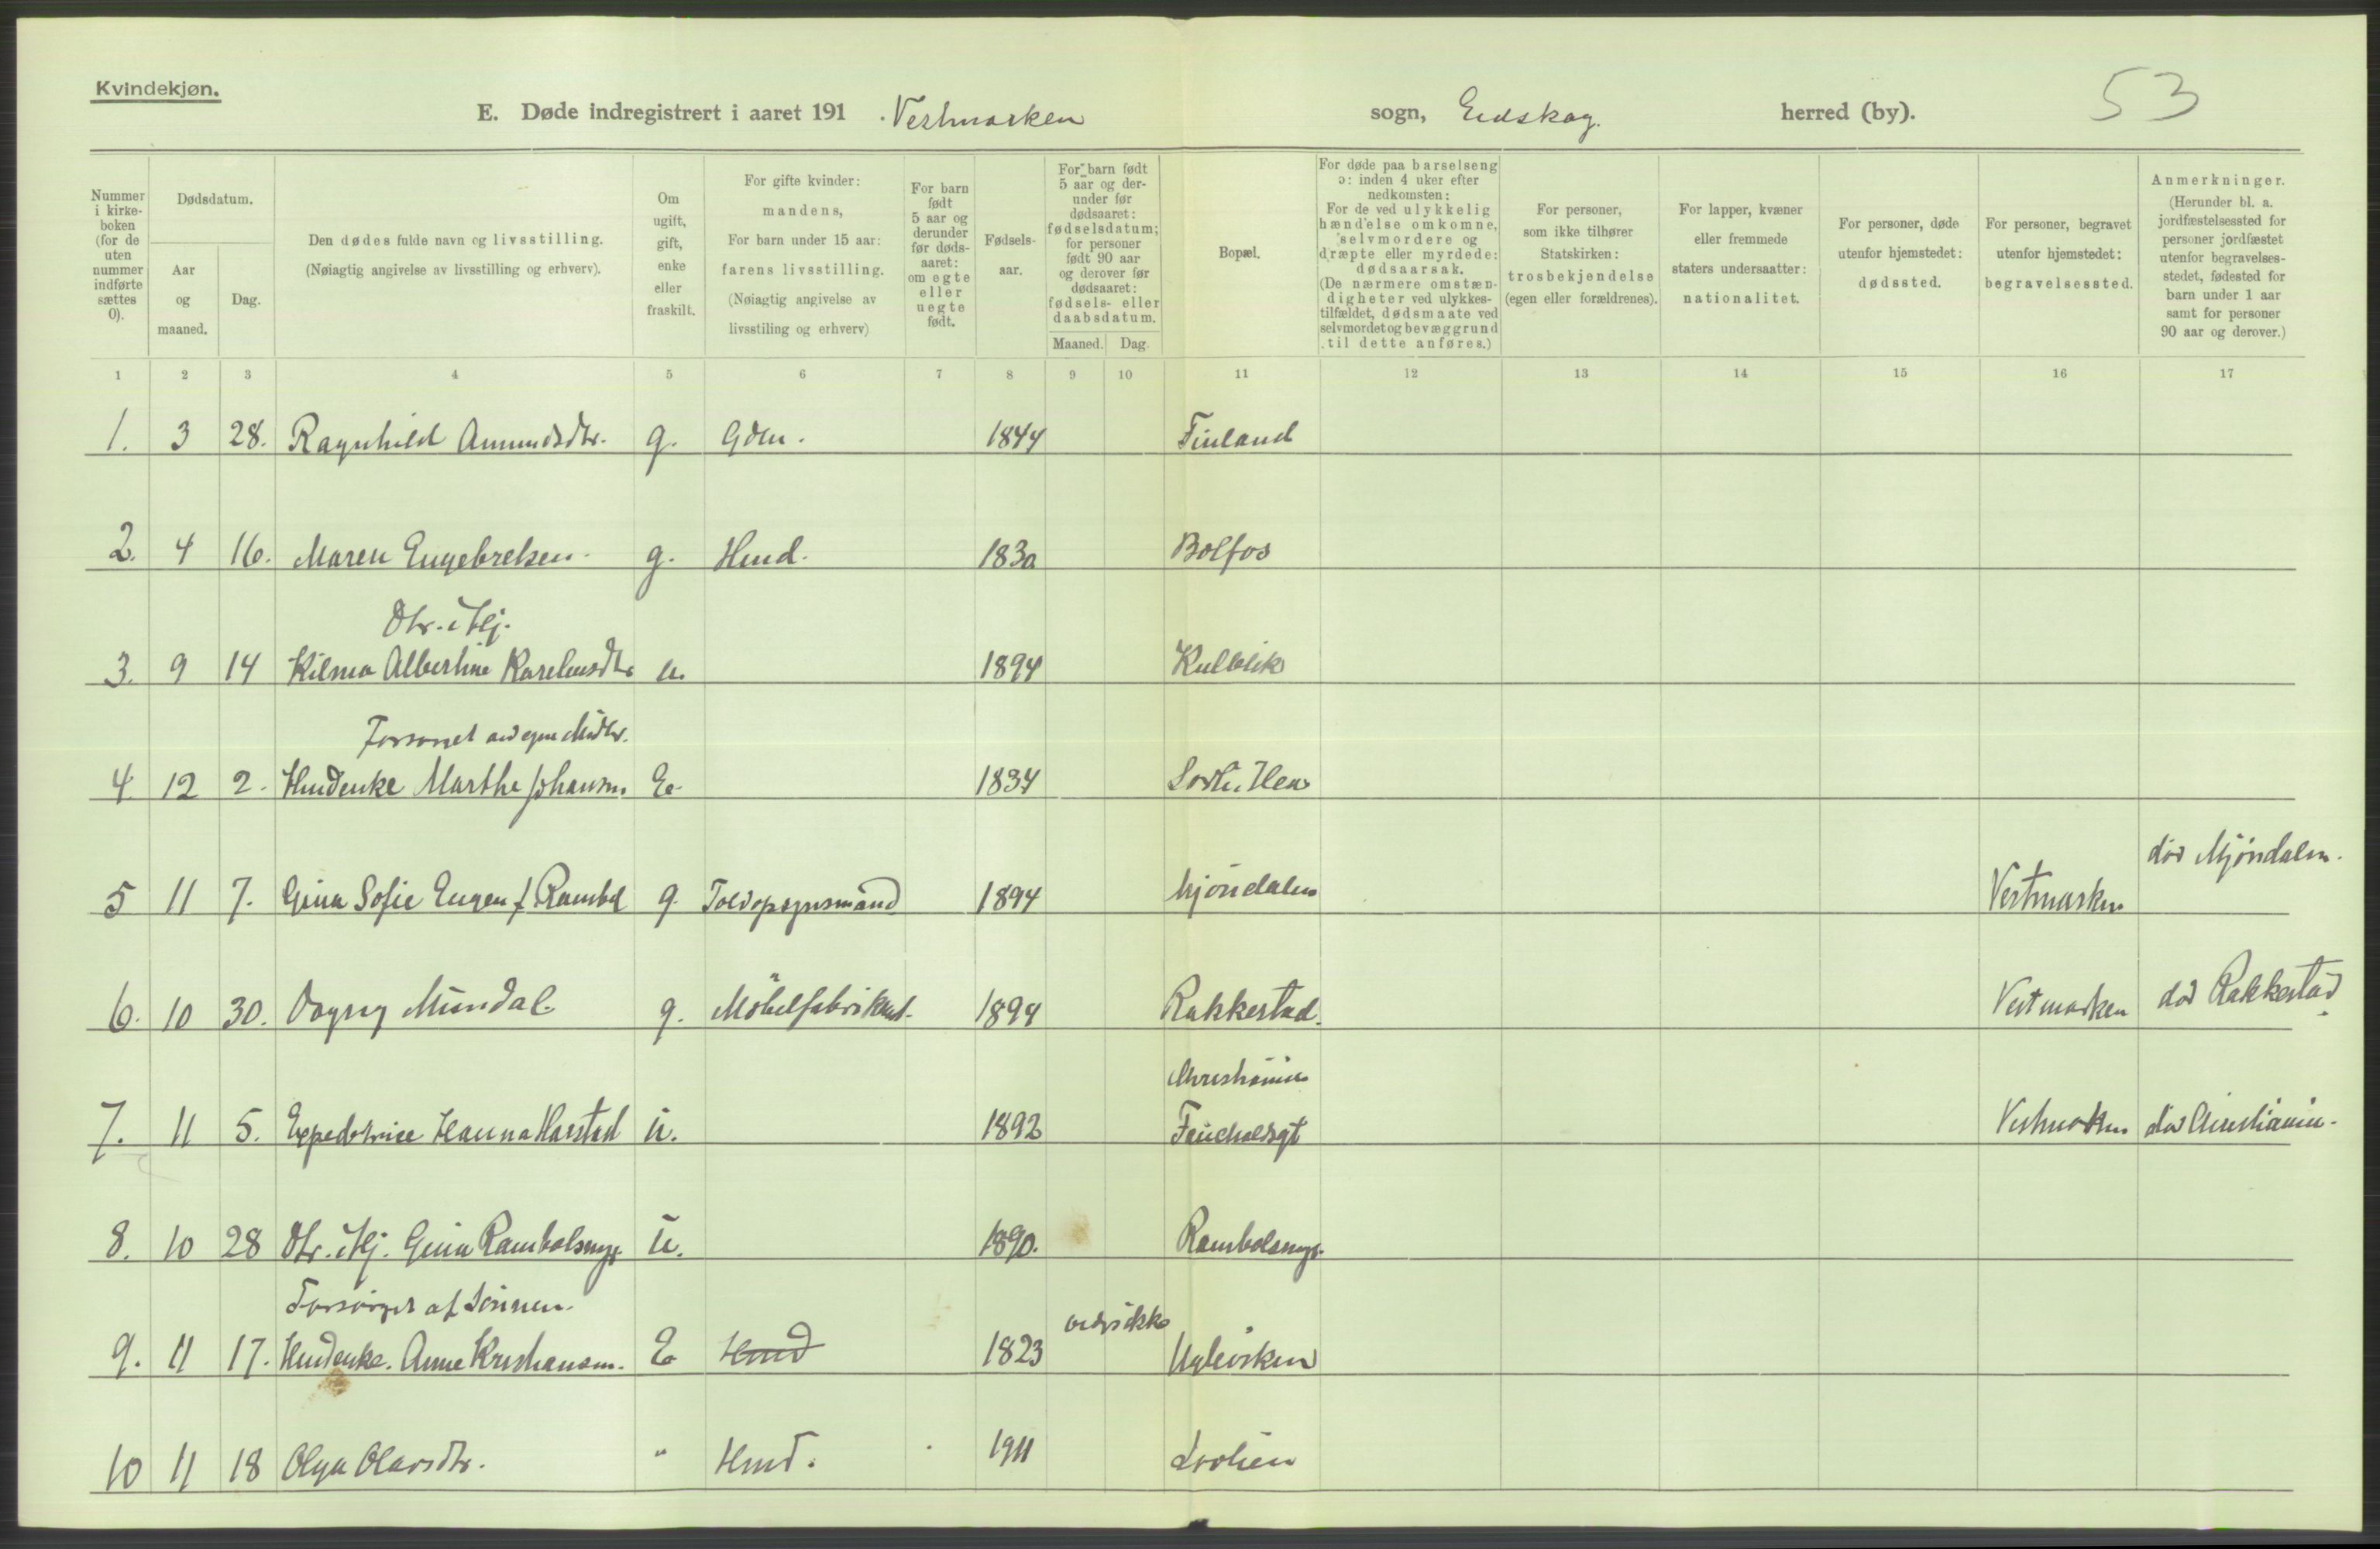 Kvindekjøn.
E. Døde indregistrert i aaret 191 . Vestmarken sogn, Eidskog. herred (by). 53
Nummer i kirke-boken (for de uten nummer indførte sættes 0).
Dødsdatum.
Aar og maaned.
Dag.
Den dødes fulde navn og livsstilling.
(Nøiagtig angivelse av livsstilling og erhverv).
Om ugift, gift, enke eller fraskilt.
For gifte kvinder: mandens,
For barn under 15 aar: farens livsstilling.
(Nøiagtig angivelse av livsstiling og erhverv)
For barn født 5 aar og derunder før døds-aaret: om egte eller uegte født.
Fødsels-aar.
For barn født 5 aar og der-under før dødsaaret: fødselsdatum; for personer født 90 aar og derover før dødsaaret: fødsels- eller daabsdatum.
Maaned. Dag.
Bopæl.
For døde paa barselseng ɔ: inden 4 uker efter nedkomsten:
For de ved ulykkelig hændelse omkomne, selvmordere og dræpte eller myrdede: dødsaarsak.
(De nærmere omstæn-digheter ved ulykkes-tilfældet, dødsmaate ved selvmordet og bevæggrund til dette anføres.)
For personer, som ikke tilhører Statskirken: trosbekjendelse (egen eller forældrenes).
For lapper, kvæner eller fremmede staters undersaatter: nationalitet.
For personer, døde utenfor hjemstedet: dødssted.
For personer, begravet utenfor hjemstedet: begravelsessted.
Anmerkninger.
(Herunder bl. a. jordfæstelsessted for personer jordfæstet utenfor begravelses-stedet, fødested for barn under 1 aar samt for personer 90 aar og derover.)
1 2 3 4 5 6 7 8 9 10 11 12 13 14 15 16 17
1. 3 28. Ragnhild Amundsdtr. g. Gdm. 1844 Finland
2. 4 16. Maren Engebretsen. g. Hmd. 1830 Bolfos
Dtr. i Hj.
3. 9 14 Hilma Albertine Karelusdtr u. 1894 Kulblik
Forsørget av egne Midler.
4 12 2. Hmdenke Marthe Johansen E. 1834
5 11 7. Gina Sofie Eugen f. Rambøl g. Toldopsynsmand 1894 Mjøndalen Vestmarken død Mjøndalen.
6. 10 30. Dagny Mundal g. Møbelfabrikant. 1894 Rakkestad. Vestmarken død Rakkestad.
Christiania
7. 11 5. Expeditrice Hanna Harstad u. 1892 Vestmarken død Christiania.
8. 10 28 Dtr. i Hj. Gina Rambølsmyr. u. 1890. Rambølsmyr.
Forsørget af Sønnen.
9. 11 17. Hmdenke. Anne Kristiansen. E Hmd 1823 vides ikke
10 11 18 Olga Olavsdtr. " Hmd. 1911